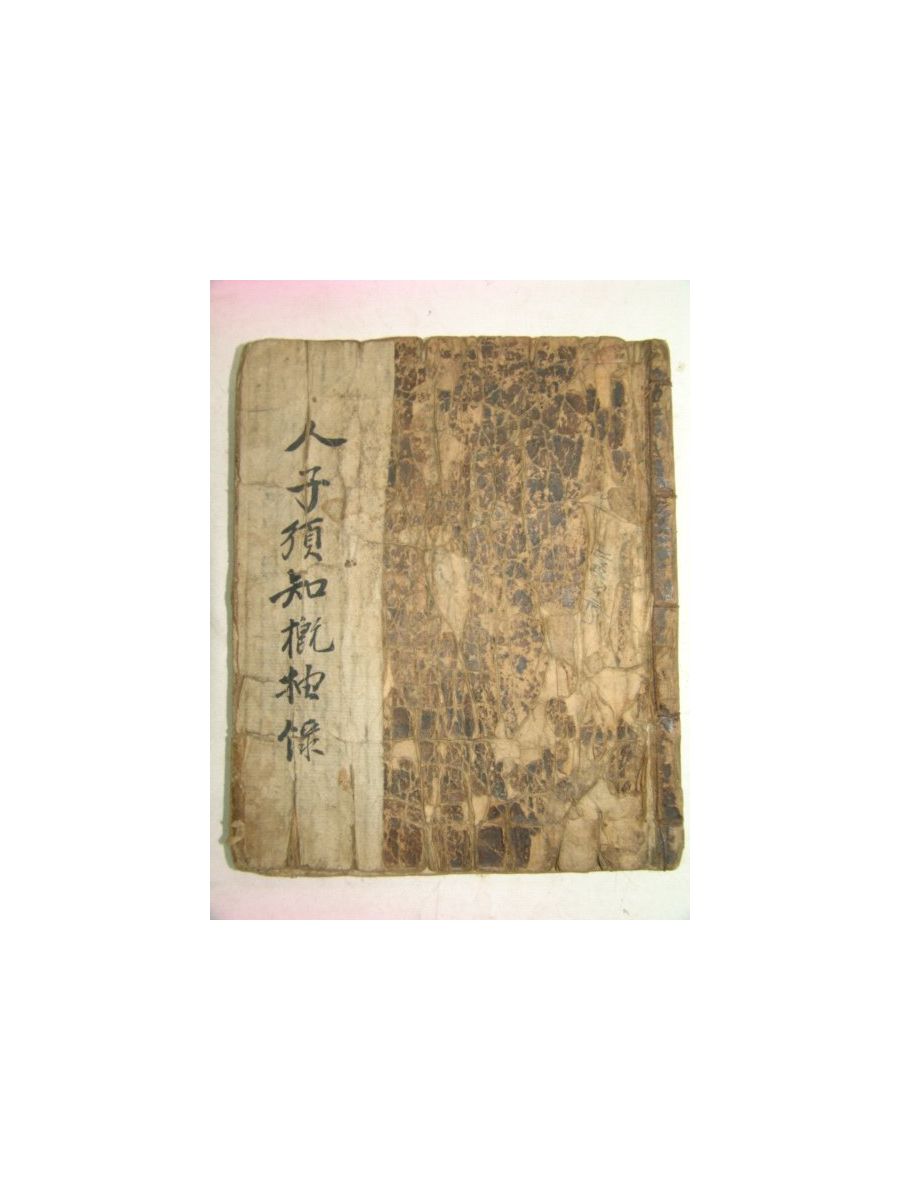 人子須知概抽錄